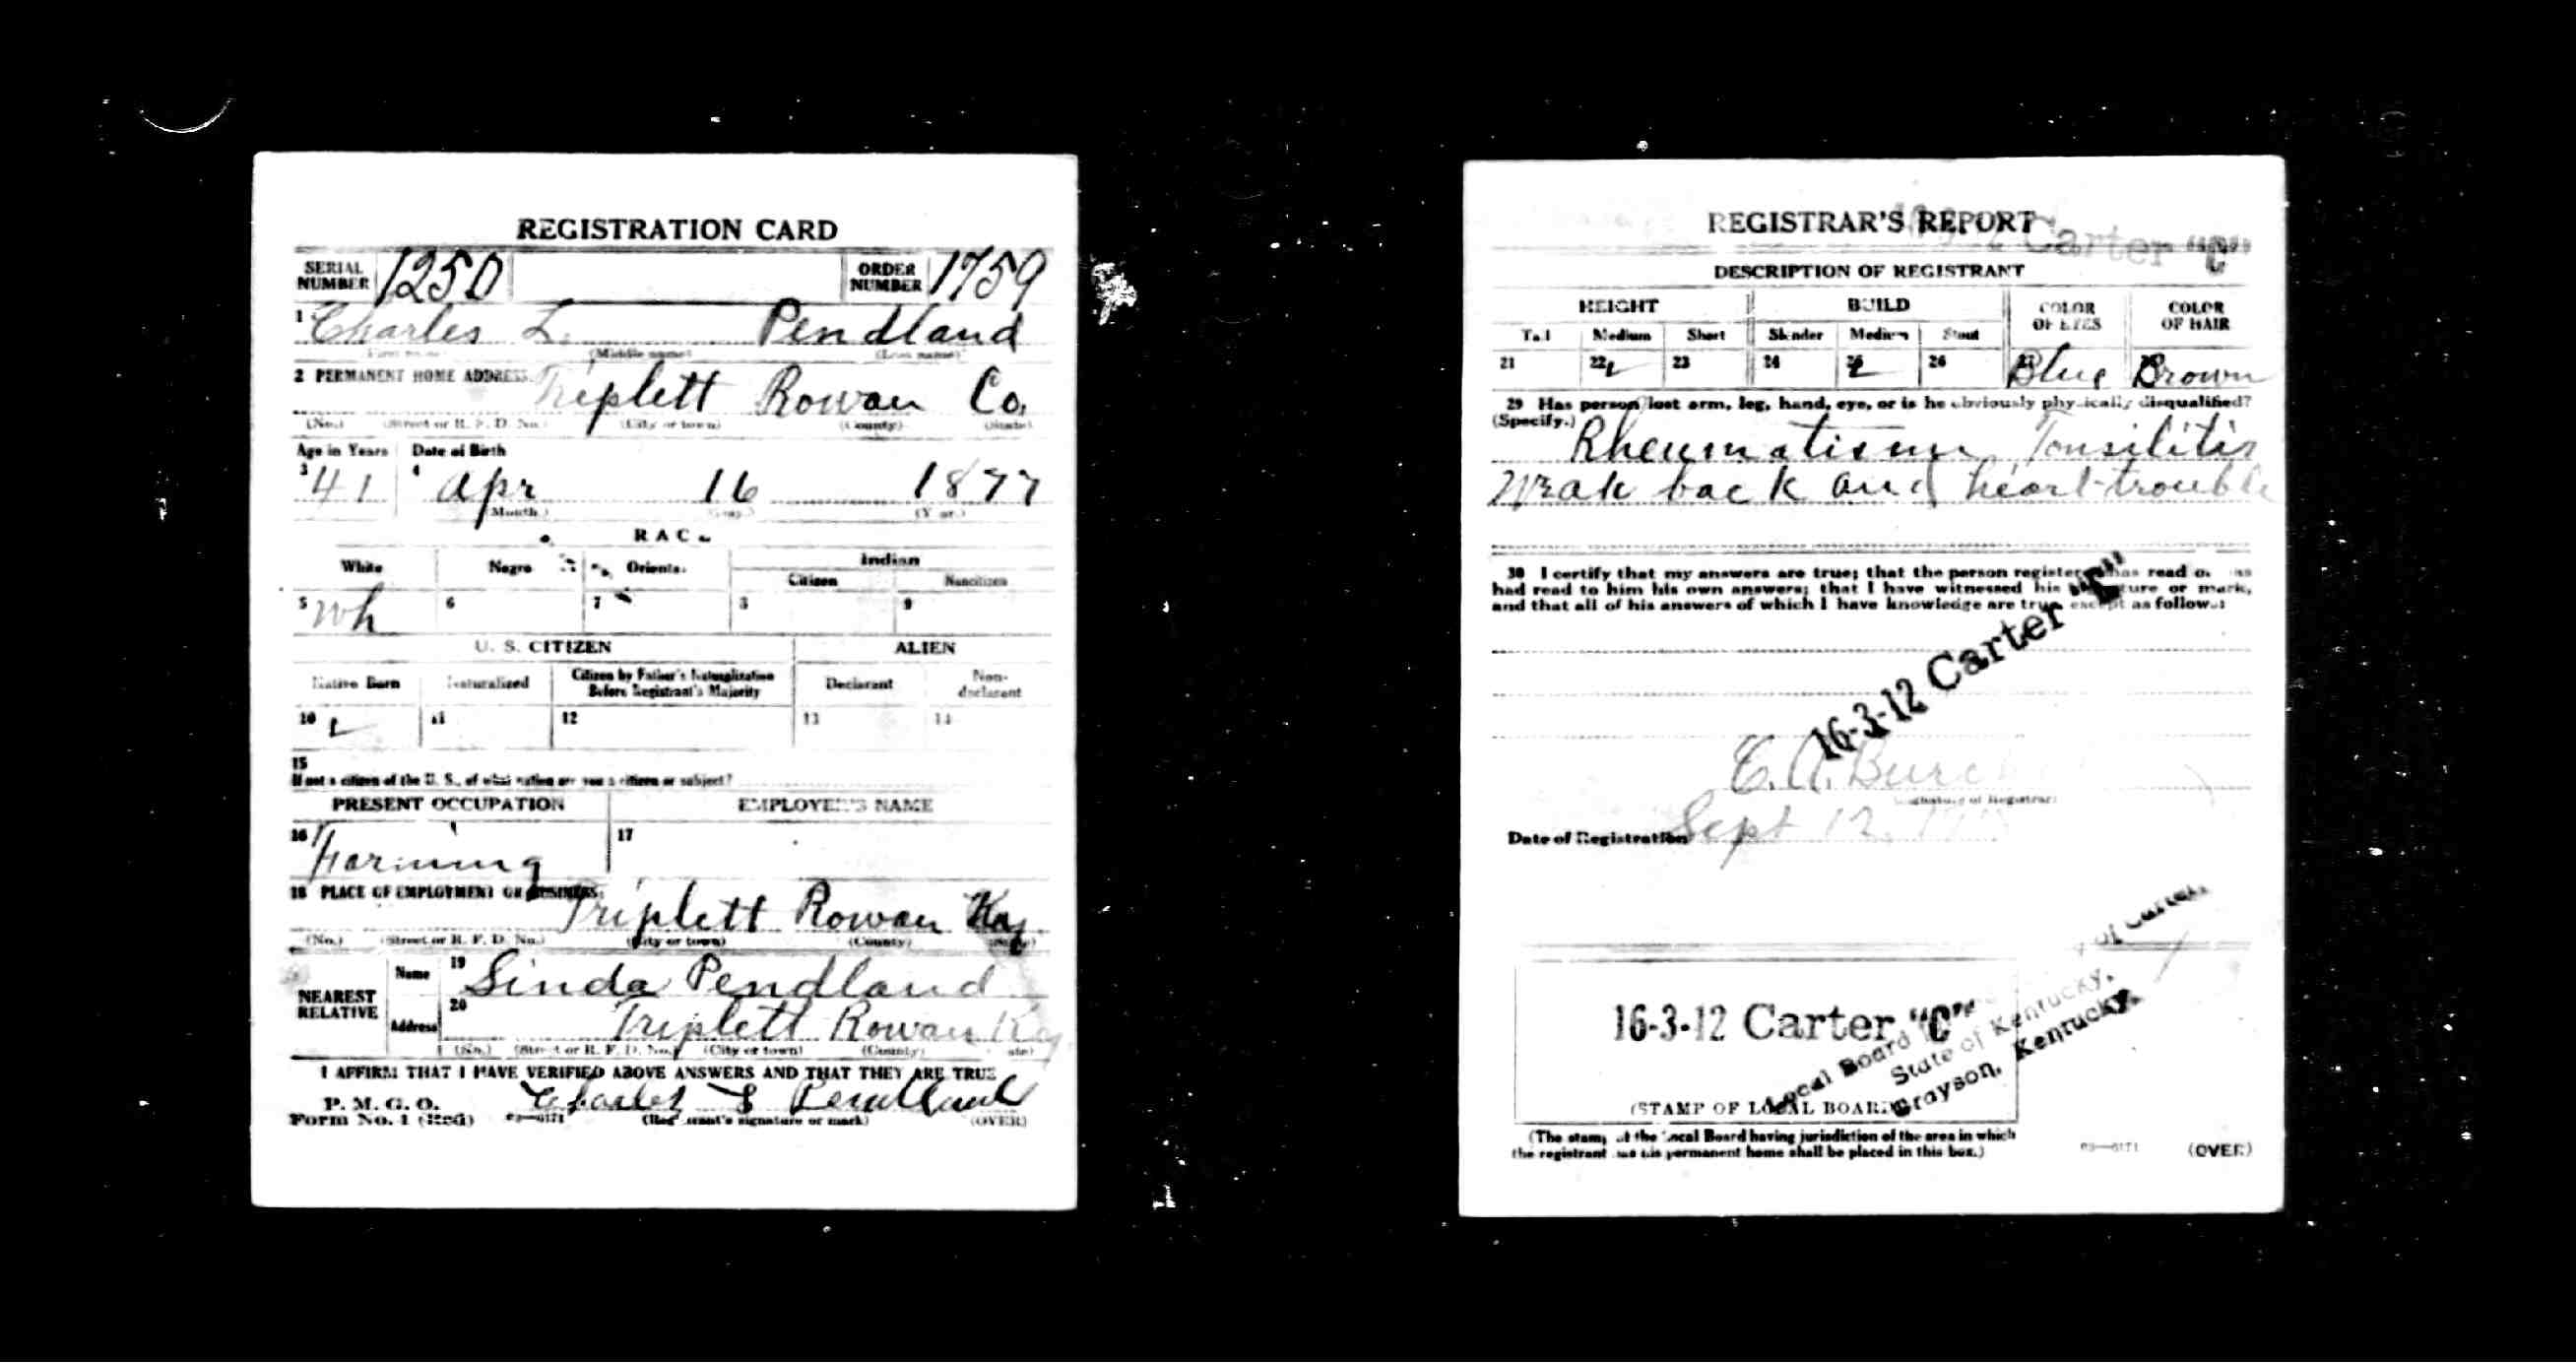 REGISTRATION CARD
SERIAL NUMBER 1250 ORDER NUMBER 1759
1 Charles L. Pendland
(Middle name) (Last name)
2 PERMANENT HOME ADDRESS Triplett Rowan Co.
(No.) (Street or R. F. D. No.) (City or town) (County) (State)
Age in Years Date of Birth
3 41 4 Apr 16 1877
(Month.) (Day.) (Year.)
RAC
White Negro Oriental Indian
Citizen Noncitizen
5 Wh 6 7 8 9
U. S. CITIZEN ALIEN
Native Born Naturalized Citizen by Father's Naturalization Before Registrant's Majority Declarant Non-declarant
10 11 12 13 14
15
If not a citizen of the U. S., of what nation are you a citizen or subject?
PRESENT OCCUPATION EMPLOYER'S NAME
16 Farming 17
18 PLACE OF EMPLOYMENT OR BUSINESS: Triplett Rowan Ky.
(No.) (Street or R. F. D. No.) (City or town) (County) (State)
NEAREST RELATIVE Name 19 Linda Pendland
Address 20 Triplett Rowan Ky
(No.) (Street or R. F. D. No.) (City or town) (County) (State)
I AFFIRM THAT I HAVE VERIFIED ABOVE ANSWERS AND THAT THEY ARE TRUE
P. M. G. O.
Form No. 1 (Red) 03—6171 Charles L Pendland
(Registrant's signature or mark) (OVER)
REGISTRAR'S REPORT
Carter "C"
DESCRIPTION OF REGISTRANT
HEIGHT BUILD COLOR OF EYES COLOR OF HAIR
Tall Medium Short Slender Medium Stout
21 22 23 24 25 26 27 Blue 28 Brown
29 Has person lost arm, leg, hand, eye, or is he obviously physically disqualified?
(Specify.) Rheumatism Tonsilitis
Weak back and heart trouble
30 I certify that my answers are true; that the person registered has read or has
had read to him his own answers; that I have witnessed his signature or mark,
and that all of his answers of which I have knowledge are true, except as follows:
16-3-12 Carter "C"
(Signature of Registrar)
Date of Registration Sept 12,
16-3-12 Carter "C"
Local Board
of Carter
State of Kentucky,
Grayson, Kentucky.
(STAMP OF LOCAL BOARD)
(The stamp of the Local Board having jurisdiction of the area in which
the registrant has his permanent home shall be placed in this box.)
03—6171 (OVER)